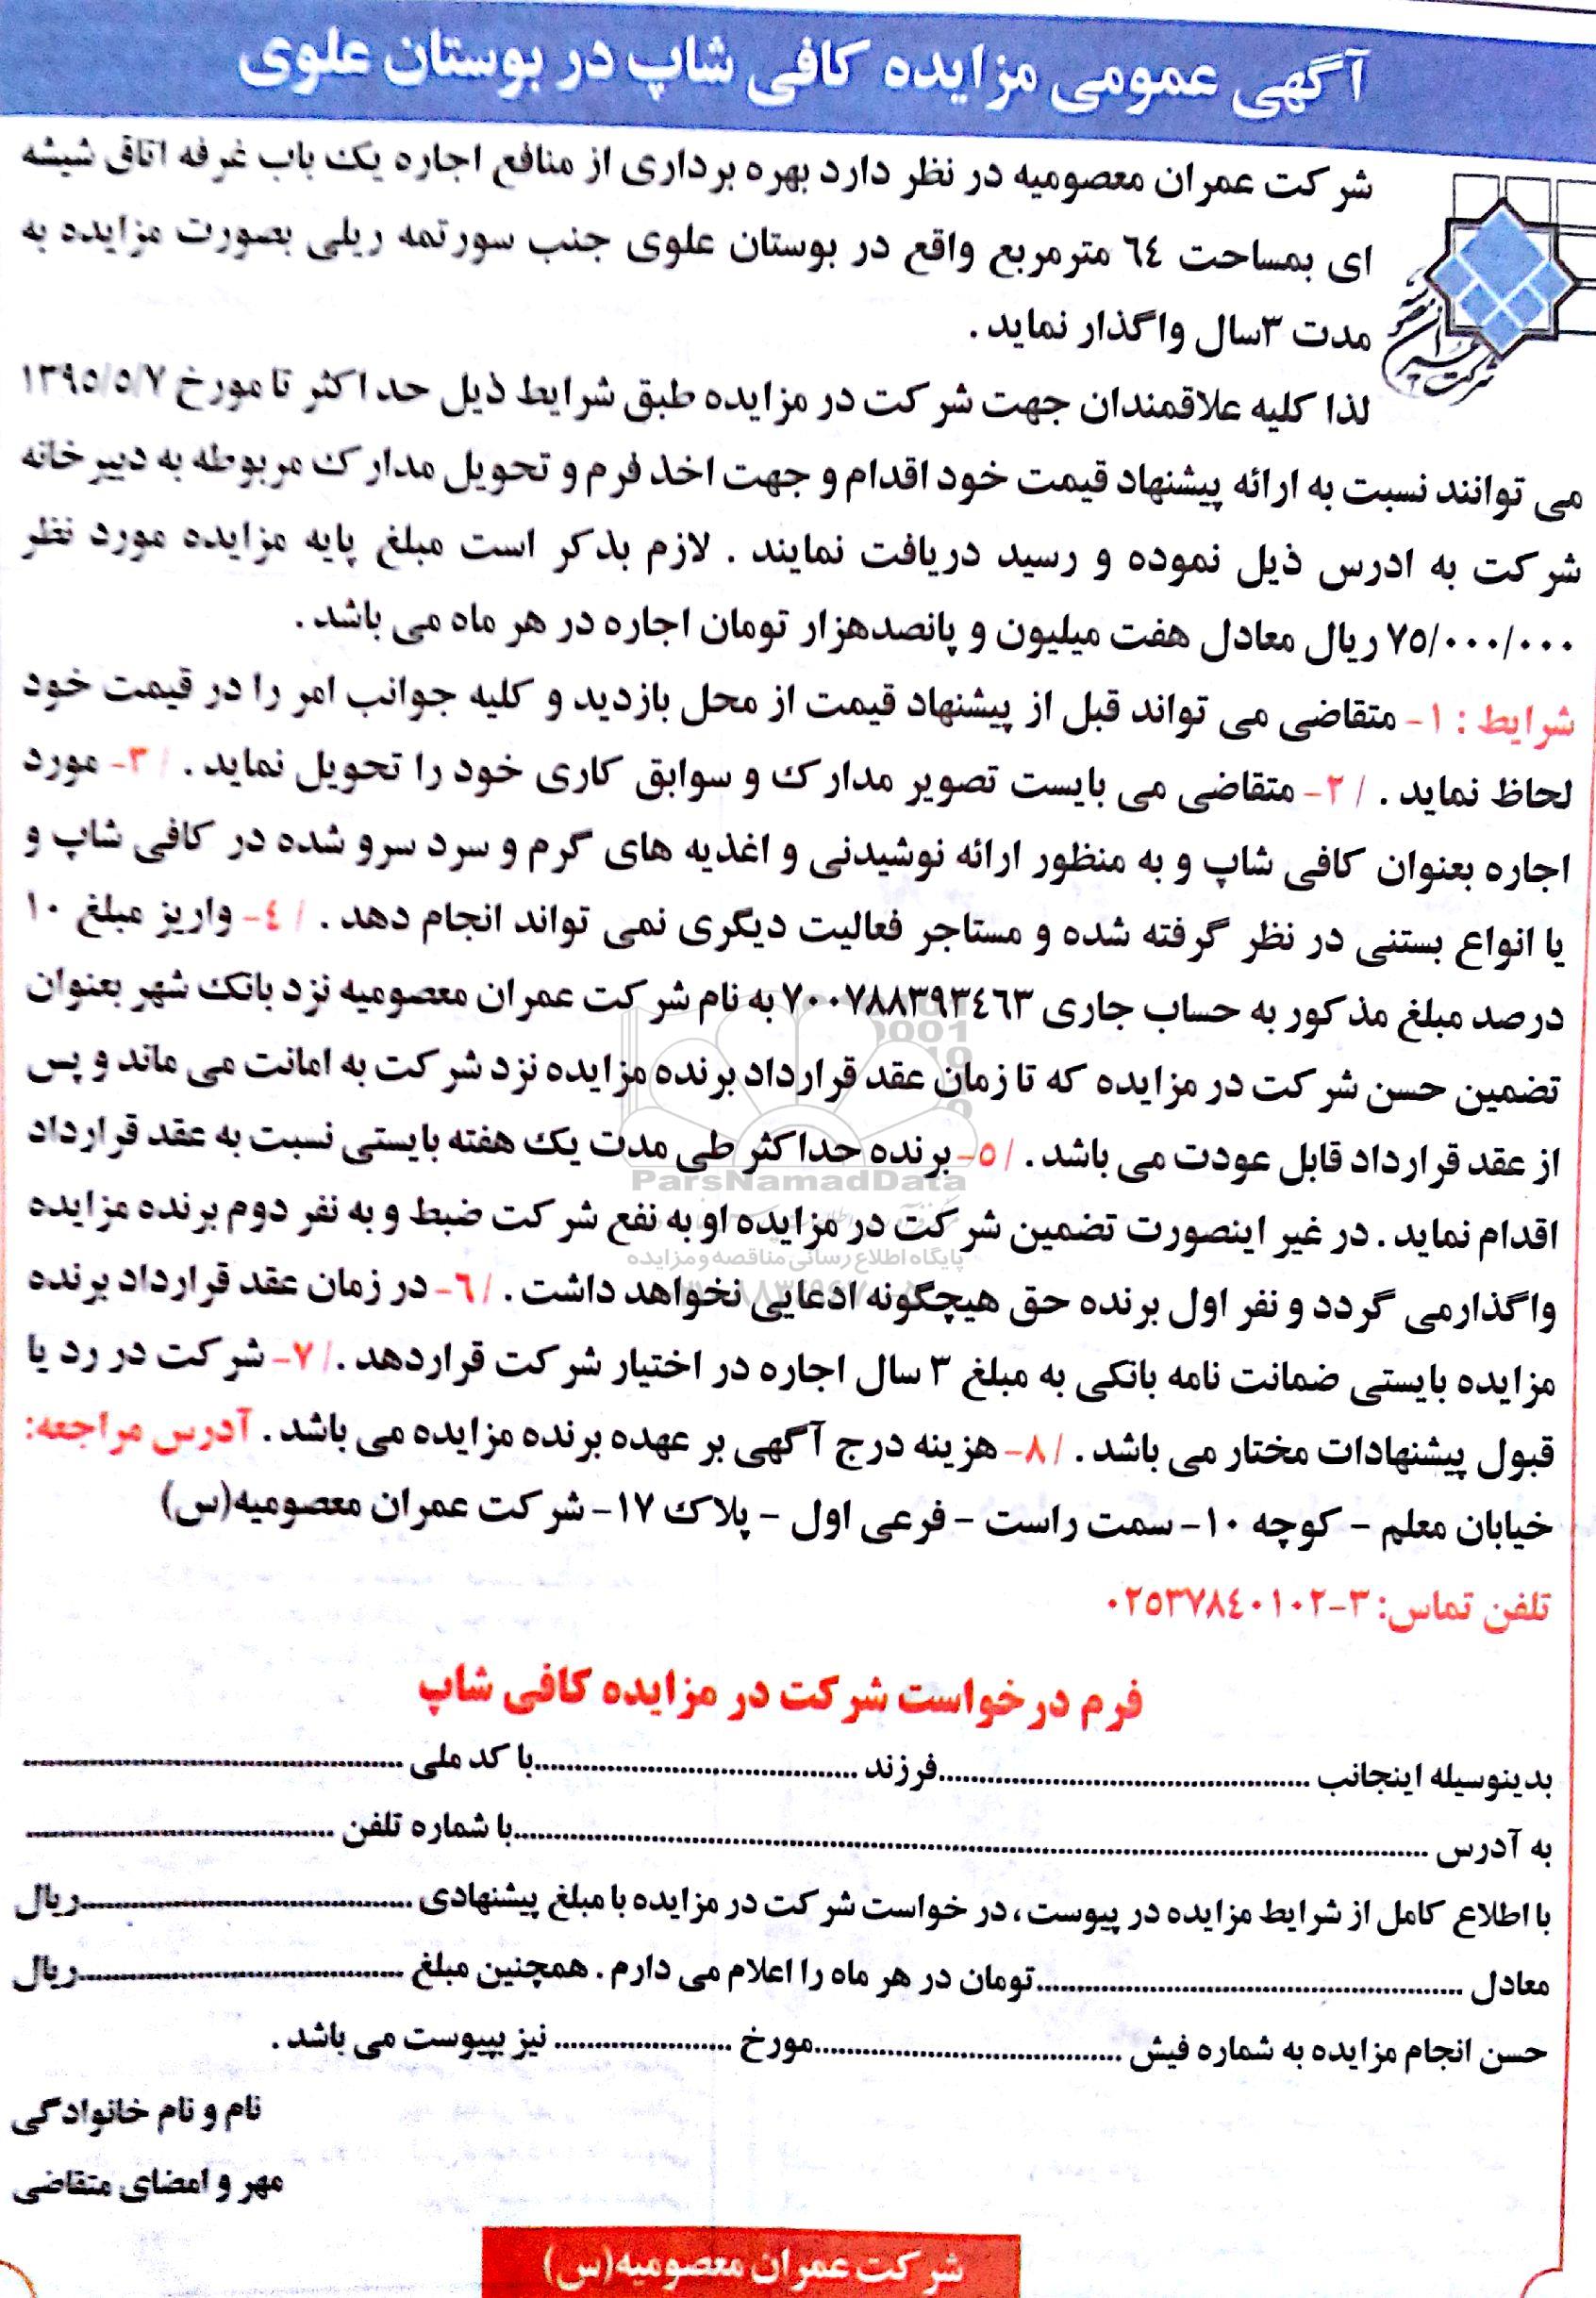 آگهی عمومی مزایده کافی شاپ در بوستان علوی
شرکت عمران معصومیه در نظر دارد بهره برداری از منافع اجاره یک باب غرفه اتاق شیشه
ای بمساحت ٦٤ مترمربع واقع در بوستان علوی جنب سورتمه ریلی بصورت مزایده به
مدت ۳سال واگذار نماید .
شرکت عمران معصومیه
لذا کلیه علاقمندان جهت شرکت در مزایده طبق شرایط ذیل حداکثر تا مورخ ۱۳۹٥/٥/۷
می توانند نسبت به ارائه پیشنهاد قیمت خود اقدام و جهت اخذ فرم و تحویل مدارک مربوطه به دبیرخانه
شرکت به ادرس ذیل نموده و رسید دریافت نمایند . لازم بذکر است مبلغ پایه مزایده مورد نظر
۷٥/۰۰۰/۰۰۰ ریال معادل هفت میلیون و پانصدهزار تومان اجاره در هر ماه می باشد .
شرایط : ۱- متقاضی می تواند قبل از پیشنهاد قیمت از محل بازدید و کلیه جوانب امر را در قیمت خود
لحاظ نماید . / ۲- متقاضی می بایست تصویر مدارک و سوابق کاری خود را تحویل نماید . / ۳- مورد
اجاره بعنوان کافی شاپ و به منظور ارائه نوشیدنی و اغذیه های گرم و سرد سرو شده در کافی شاپ و
یا انواع بستنی در نظر گرفته شده و مستاجر فعالیت دیگری نمی تواند انجام دهد . / ٤- واریز مبلغ ۱۰
درصد مبلغ مذکور به حساب جاری ۷۰۰۷۸۸۳۹۳٤٦۳ به نام شرکت عمران معصومیه نزد بانک شهر بعنوان
تضمین حسن شرکت در مزایده که تا زمان عقد قرارداد برنده مزایده نزد شرکت به امانت می ماند و پس
از عقد قرارداد قابل عودت می باشد . / ٥- برنده حداکثر طی مدت یک هفته بایستی نسبت به عقد قرارداد
ParsNamadData
اقدام نماید . در غیر اینصورت تضمین شرکت در مزایده او به نفع شرکت ضبط و به نفر دوم برنده مزایده
پایگاه اطلاع رسانی مناقصه و مزایده
واگذارمی گردد و نفر اول برنده حق هیچگونه ادعایی نخواهد داشت . / ٦- در زمان عقد قرارداد برنده
مزایده بایستی ضمانت نامه بانکی به مبلغ ۳ سال اجاره در اختیار شرکت قراردهد ./ ۷- شرکت در رد یا
قبول پیشنهادات مختار می باشد . / ۸- هزینه درج آگهی بر عهده برنده مزایده می باشد . آدرس مراجعه:
خیابان معلم - کوچه ۱۰- سمت راست - فرعی اول - پلاک ۱۷- شرکت عمران معصومیه(س)
تلفن تماس: ۳-۰۲٥۳۷۸٤۰۱۰۲
فرم درخواست شرکت در مزایده کافی شاپ
بدینوسیله اینجانب ..........فرزند ..........با کد ملی ..........
به آدرس ..........با شماره تلفن ..........
با اطلاع کامل از شرایط مزایده در پیوست ، درخواست شرکت در مزایده با مبلغ پیشنهادی ..........ریال
معادل ..........تومان در هر ماه را اعلام می دارم . همچنین مبلغ ..........ریال
حسن انجام مزایده به شماره فیش ..........مورخ .......... نیز بپیوست می باشد .
نام و نام خانوادگی
مهر و امضای متقاضی
شرکت عمران معصومیه(س)